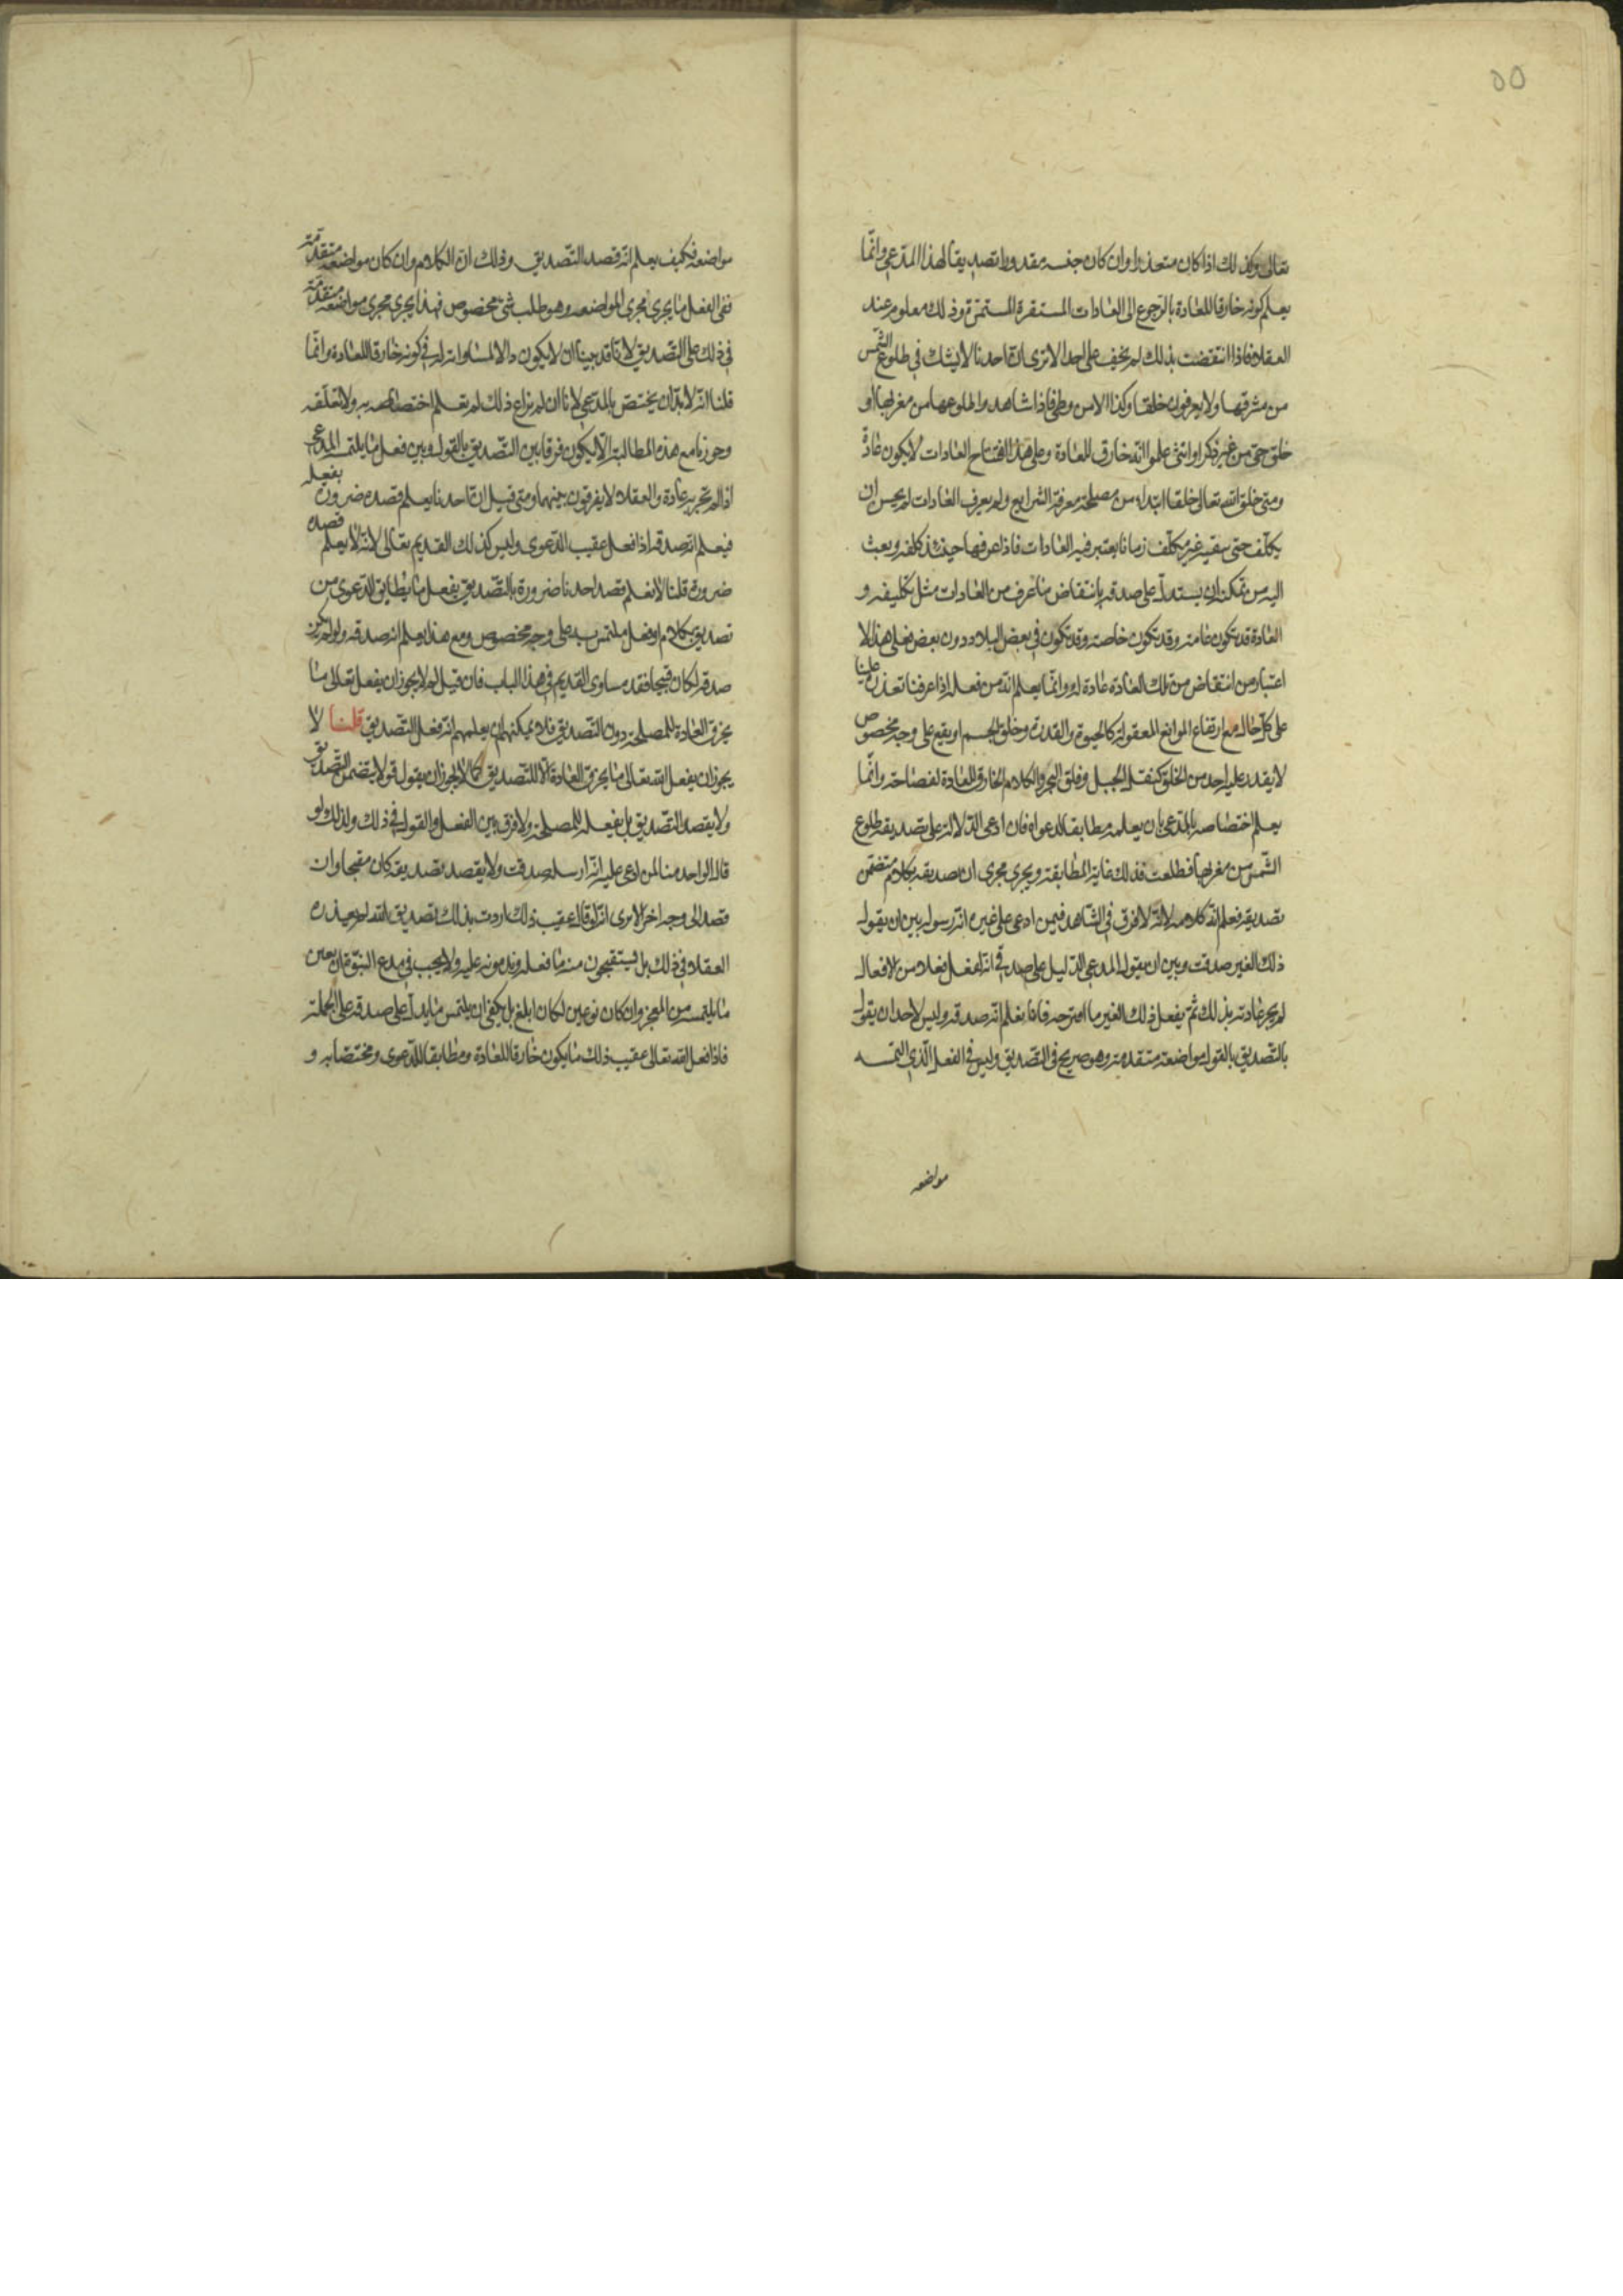 ٥٥
تعالى وكذلك اذا كان متعذرا وان كان جنسه مقدورا تصديقا لهذا المدّعي وانّما
يعلم كونه خارقا للعادة بالرّجوع الى العادات المستقرة المستمرّة وذلك معلوم عند
العقلاء فاذا انتقضت بذلك لم يخف على احد الا ترى انّ احدنا لا يشك في طلوع الشّمس
من مشرقها ولا يعرفون خلقا وكذا الا من وطئ فاذا شاهدوا طلوعها من مغربها او
خلق حيّ من غير ذكر او انثى علموا انّه خارق للعادة وعلى هذا افتتاح العادات لا يكون عادة
ومتى خلق الله تعالى خلقا ابتداء من مصلحته معرفة الشرايع ولم يعرف العادات لم يحسن ان
يكلّف حتى يبقيه غير مكلّف زمانا يعتبر فيه العادات فاذا عرفها حينئذ كلفه وبعث
اليه من تمكن ان يستدلّ على صدقه بانتقاض ما عرف من العادات مثل تكليفه و
العادة قد تكون عامة وقد تكون خاصة وقد تكون في بعض البلاد دون بعض فعلى هذا لا
اعتبار من انتقاض من تلك العادة عادة له وانّما يعلم انّه من فعله اذا عرفنا تعذره علينا
على كلّ حال مع ارتفاع الموانع المعقولة كالحيوة والقدرة وخلق الجسم او يقع على وجه مخصوص
لا يقدر عليه احد من الخلق كنقل الجبل وفلق البحر والكلام الخارق للعادة لفصاحته وانّما
يعلم اختصاصه بالمدّعي بان يعلمه مطابقا لدعواه فان ادعى الدّلالة على تصديقه طلوع
الشّمس من مغربها فطلعت فذلك غاية المطابقة ويجري مجرى ان صديقه بكلام متضمّن
تصديقه فعلم انّه كلامه لانّه لا فرق في الشّاهد فيمن ادعى على غيره انّه رسوله بين ان يقول
ذلك الغير صدقت وبين ان يقول المدعي الدّليل على صدقي انّه يفعل فعلا من الافعال
لم يجر عادته بذلك ثمّ يفعل ذلك الغير ما اقترحه فانا نعلم انّه صدقه وليس لاحد ان يقول
بالتّصديق بالقول مواضعة متقدمة وهو صريح في التّصديق وليس في الفعل الّذي التمسه
مواضعه
مواضعه فكيف يعلم انّه قصد التّصديق وذلك انّ الكلام وان كان مواضعه متقدّمة
ففي الفعل ما يجري مجرى المواضعه وهو طلب شئ مخصوص فهذا يجري مجرى مواضعة متقدّمة
في ذلك على التّصديق لانّا قد بينا ان لا يكون دالا لمساواته له في كونه خارقا للعادة وانّما
قلنا انّه لا بدّ ان يختصّ بالمدعي لانا ان لم نراع ذلك لم نعلم اختصاصه به ولا تعلّقه
وجوزنا مع هذه المطالبة الّا يكون فرقا بين التّصديق بالقول وبين فعل ما يلتمسه المدعي
اذا لم تجر به عادة والعقلاء لا يفرقون بينهما ومتى قيل انّ احدنا يعلم قصده ضرورة بفعله
فيعلم انه صدقه اذا فعل عقيب الدّعوى وليس كذلك القديم تعالى لانّه لا يعلم قصده
ضرورة قلنا لا نعلم قصد احدنا ضرورة بالتّصديق بفعل ما يطابق الدّعوى من
تصديق بكلام او فعل ملتمس به على وجه مخصوص ومع هذا يعلم انه صدقه ولو لم يكن
صدقه لكان قبيحا فقد ساوى القديم في هذا الباب فان قيل الم لا يجوز ان يفعل تعالى ما
يخرق العادة للمصلحة دون التّصديق فلا يمكنهم ان يعلمهم انّه فعل التّصديق قلنا لا
يجوز ان يفعل الله تعالى ما يخرق العادة الّا للتّصديق كما لا يجوز ان يقول قولا يتضمن التّصديق
ولا يقصد التّصديق بل يفعله للمصلحة ولا فرق بين الفعل والقول في ذلك ولذلك لو
قال الواحد منا لمن ادعى عليه انّه ارسله صدقت ولا يقصد تصديقه كان مقبحا وان
قصد الى وجه اخر الا ترى انّه لو قال عقيب ذلك اردت بذلك تصديق الله لم يعذره
العقلاء في ذلك بل يستقبحون منه ما فعله ويذمونه عليه ولا يجب في مدع النبوّة ان يعين
ما يلتمسه من المعجز وان كان نوعين لكان ابلغ بل يكفي ان يلتمس ما يدلّ على صدقه على الجملة
فاذا فعل الله تعالى عقيب ذلك ما يكون خارقا للعادة ومطابقا للدّعوى ومختصّا به و